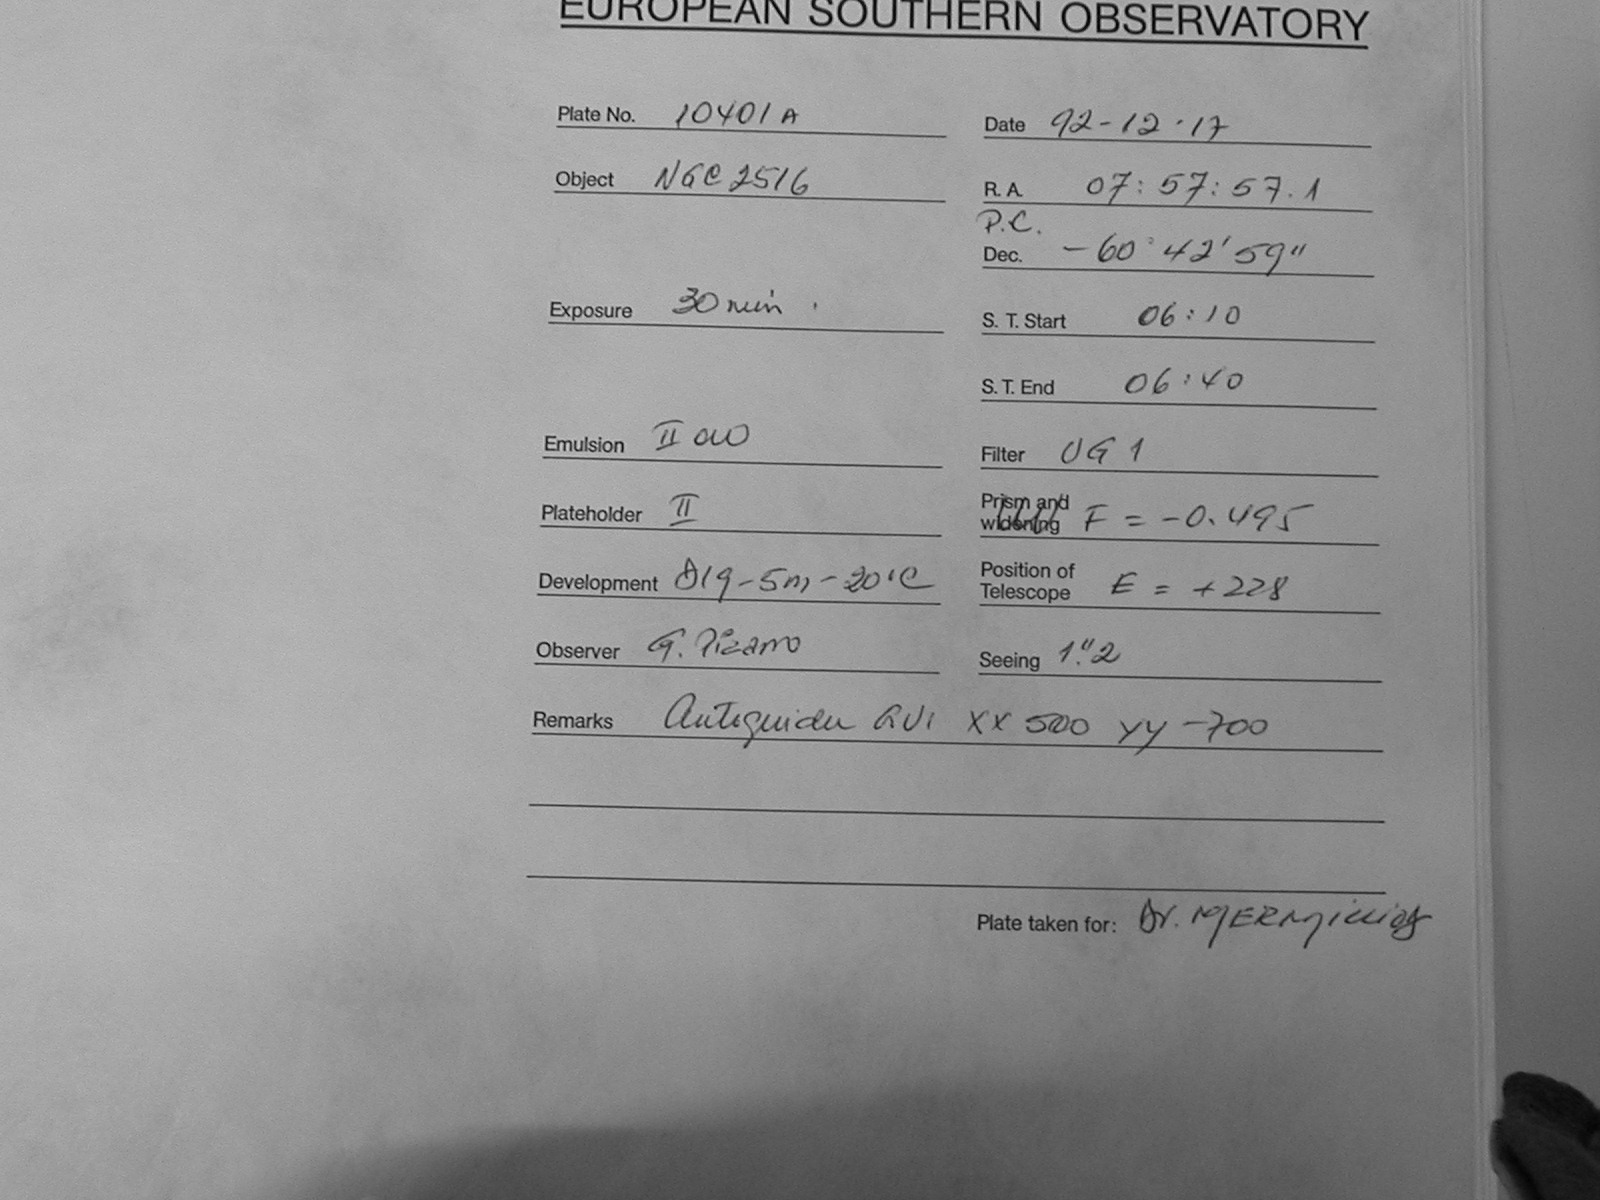 EUROPEAN SOUTHERN OBSERVATORY
Plate No. 10401 A
Date 92-12-17
Object NGC 2516
R. A. 07: 57: 57.1
P.C.
Dec. -60° 42' 59"
Exposure 30 min.
S. T. Start 06:10
S. T. End 06:40
Emulsion II aO
Filter UG 1
Plateholder II
Prism and
widening F = -0.495
Development D19-5m-20°C
Position of
Telescope E = +228
Observer G. Pizarro
Seeing 1."2
Remarks XX 500 YY -700
Plate taken for: Dr. MERMilliod